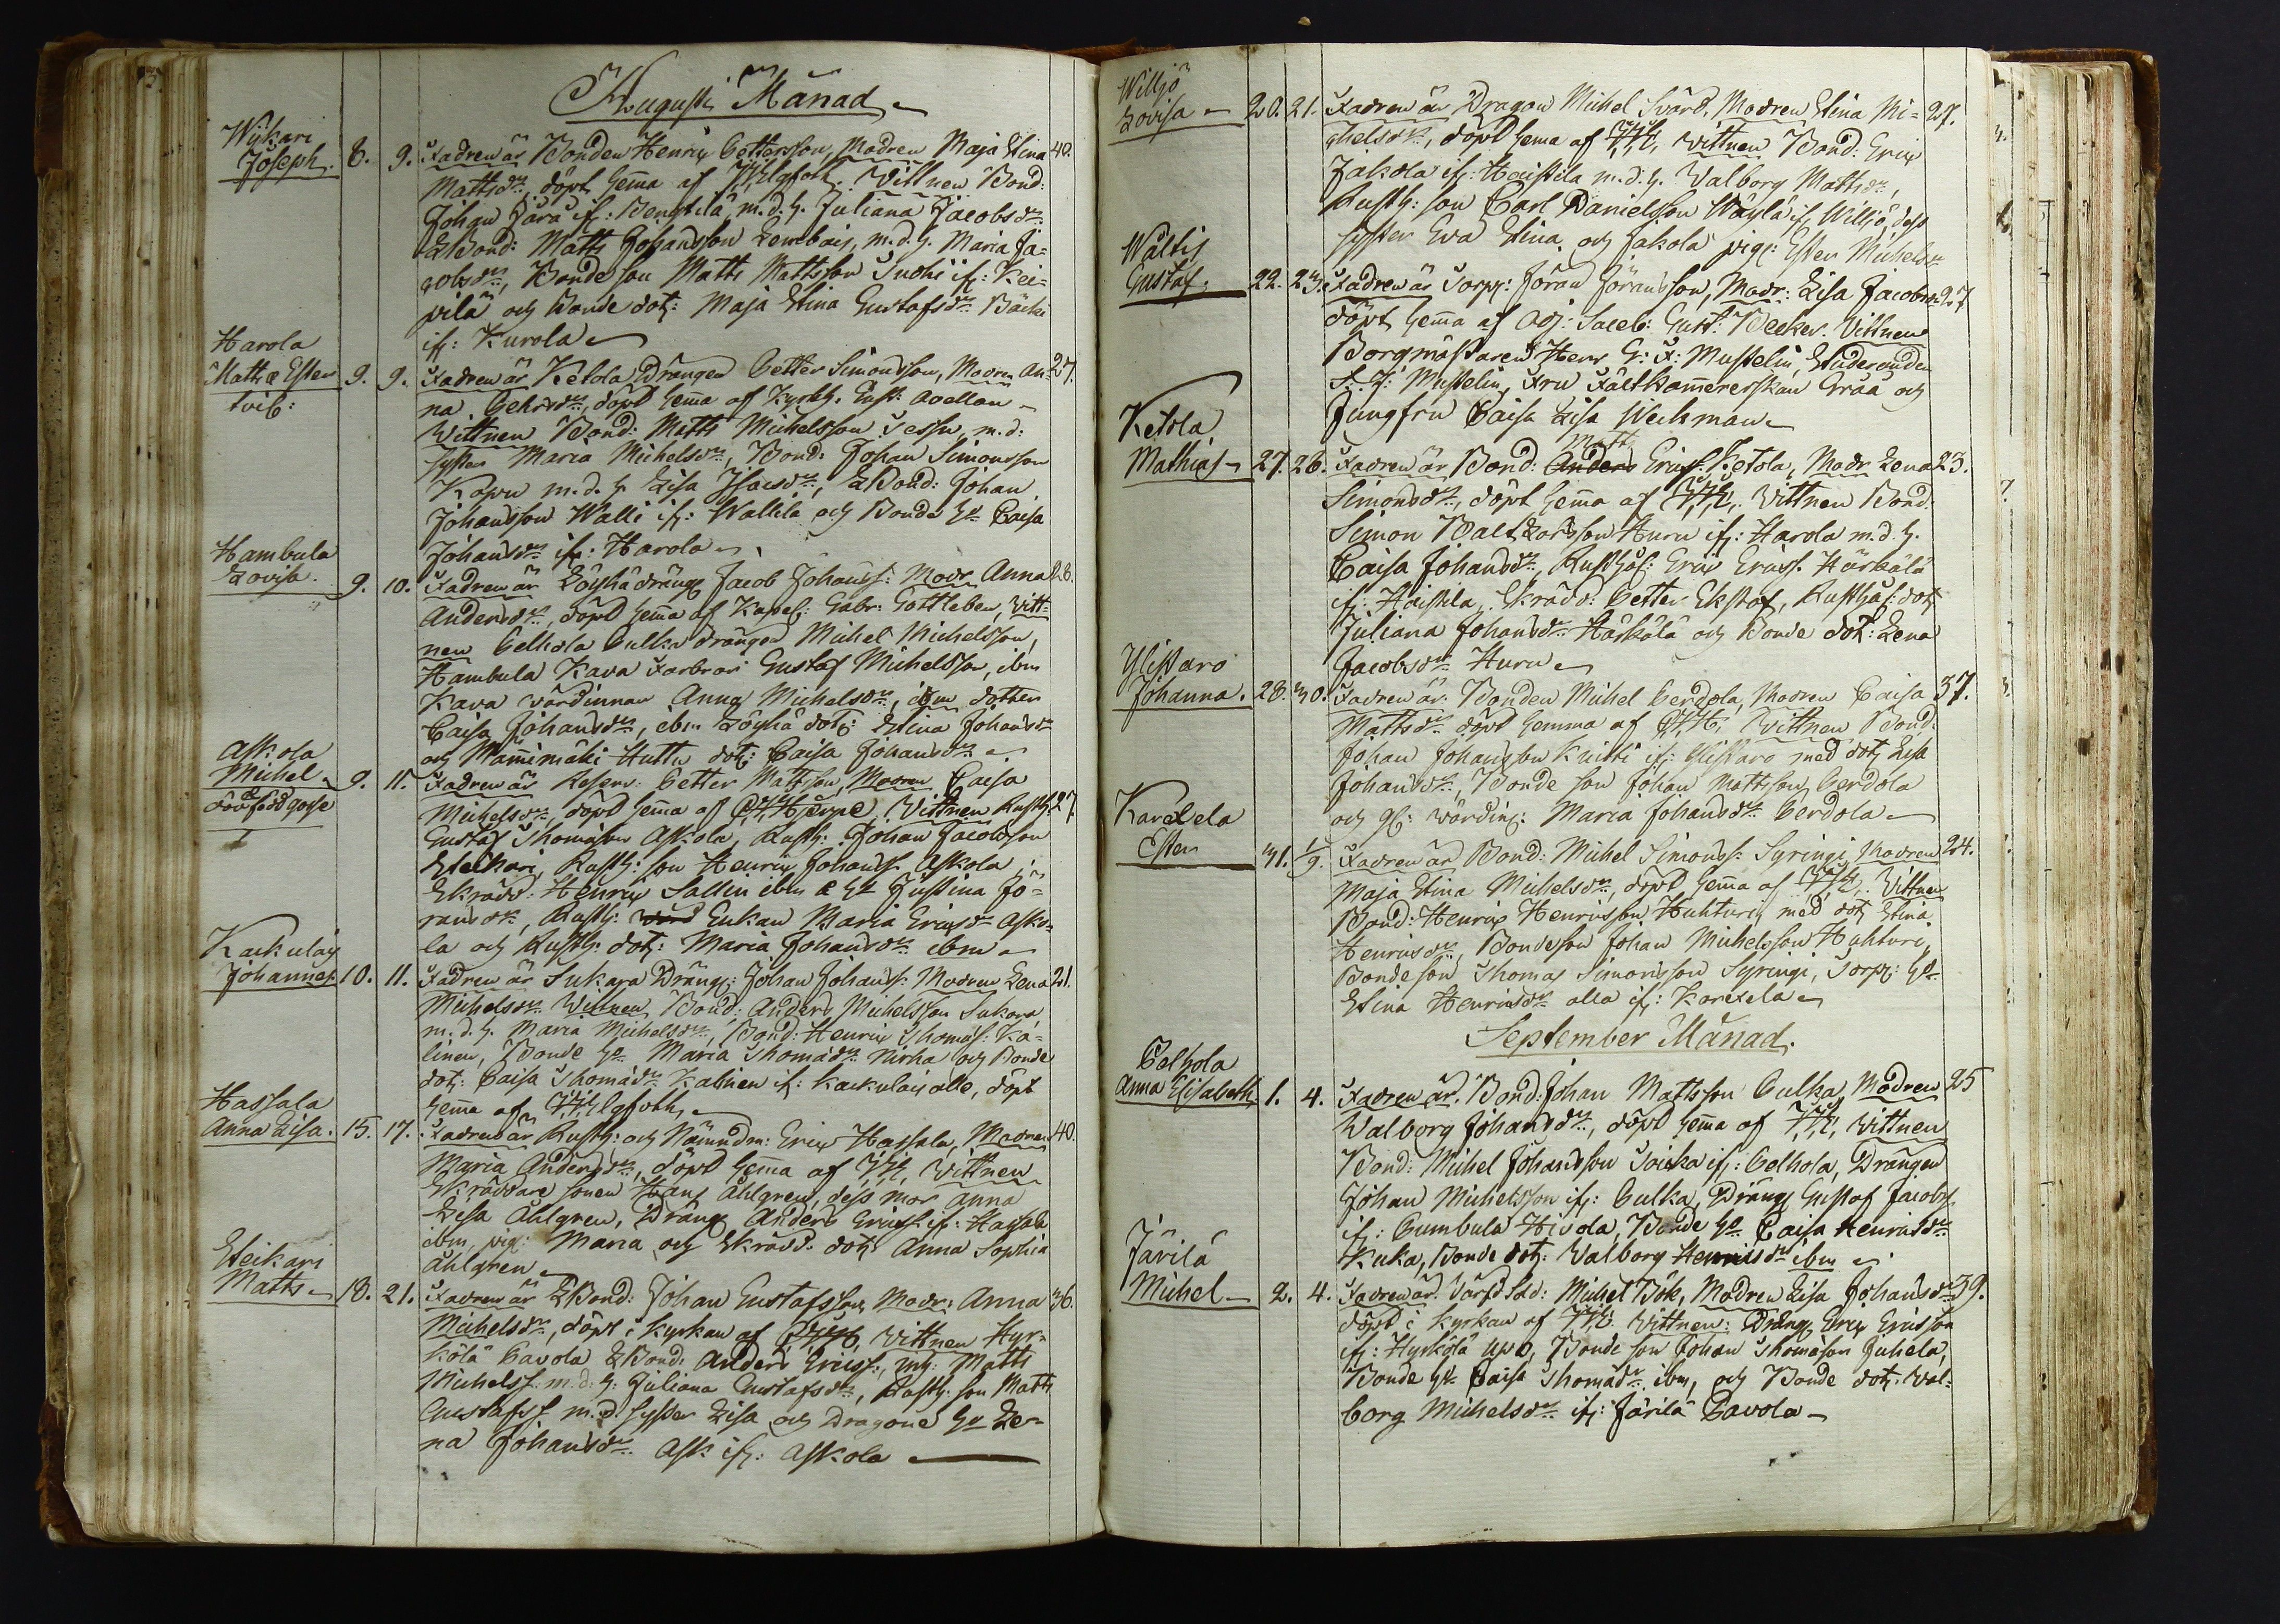 Augusti Månad
Wijkari
Joseph. 8. 9. Fadren är Bonden Henrix Pettersson, Modren Maja Stina 40.
Mattsdr, döpt hema af Elgfoth. Vittnen Bond:
Johan Järä ifr: Bengtilä, m.d.h. Juliana Jacobsdr
Bond: Matts Johansson Lembois, m.d.h. Maria Ja-
cobsdr, Bonde son Matts Mattsson Suohi ifr: Kei-
pilä och Bonde dotr: Maja Stina Gustafsdr Bäcki
ifr: Kurola
Harola
Matts & Ester 9. 9. Fadren är Ketola Drängen Petter Simonsson, Modren An- 27.
tvil: na Gehrsdr, döpt hema af Kyrkh. Gust: Avellan
Wittnen Bond: Matts Michelsson Sessu, m.d:
syster Maria Michelsdr, Bond: Johan Simonsson
Kapu m.d.h. Lisa Isacsdr, Bond: Johan
Johansson Walli ifr: Wallila och Bonde ho Caisa
Johansdr ifr: Harola
Hambula
Lovisa. 9. 10. Fadren är Löyhä drängx Jacob Johanss: Modr Anna 28.
Andersdr, döpt hema af Kapel: Gabr: Gottleben, Vitt-
nen Pelhola Pulka drängen Michel Michelsson,
Hambula Kava Farbror Gustaf Michelsson, ibm
Kava värdinnan Anna Michelsdr, ibm dotter
Caisa Johansdr, ibm Löyhä dotr: Stina Johansdr
och Mammimäki Huttu dotr: Caisa Johansdr
Askola
Michel 9. 11. Fadren är Reserv: Petter Mattsson, Modren Caisa
dödfödd gosse Michelsdr, döpt hema af, Vittnen Rusth: 27.
Gustaf Thomasson Askola, Rusth: Johan Jacobsson
Steikari, Rusth: son Henrix Johanss. Askola
Skrädd: Henrix Sallin ibm & h: Justina Jö-
ransdr, Rusth: Enkan Maria Ericsdr Asko-
la och Rusth: dotr: Maria Johansdr ibm
Karkulais
Johannes 10. 11. Fadren är Sukara Drängx: Johan Johanss: Modren Lena 21.
Michelsdr Wittnen Bond: Anders Michelsson Sukara
m.d.h. Maria Michelsdr, Bond: Henrix Thomass: Ka-
linen, Bonde ho Maria Thomasdr Nirha och Bonde
dotr: Caisa Thomasdr Kalinen ifr: Karkulais alle, döpt
hema af Elgfoth
Hassala
Anna Lisa. 15. 17. Fadren är Rusth: och Nämndm: Eric Hassala, Modren 40.
Maria Andersdr, döpt hema af Vittnen
Skräddare sonen Hans Ählgren, dess mor Anna
Lisa Ählgren, Drängx Anders Ericss. ifr: Hassala
ibm, pig: Maria och Skrädd: dotr Anna Sophia
Ählgren
Steikari
Matts 18. 21. Fadren är Bond: Johan Gustafsson, Modr: Anna 36.
Michelsdr, döpt i Kyrkan af Vittnen Hyr-
kölä Pavola Bond: Anders Ericss:, Matts
Michelss: m.d.h: Juliana Gustafsdr, Rusth: son Matts
Gustafss m.d. syster Lisa och Dragone ho Le-
na Johansdr Ask ifr: Askola
Willjö
Lovisa 20. 21. Fadren är Dragon Michel Svärd, Modren Stina Mi- 27.
chelsdr, döpt hema af Vittnen Bond: Eric
Jakola ifr: Haistila m.d.h. Walborg Mattsdr,
Rusth: son Carl Danielsson Wäylä ifr Willjö, dess
syster Eva Stina och Jakola pigx: Ester Michelsdr
Wältis
Gustaf. 22. 23. Fadren är Torpx: Jöran Jöransson, Modr: Lisa Jacobsdr 27
döpt hema af Adj: Saceb: Gust: Becker. Vittnen
Borgmästaren Herr G: F: Mustelin, Studeranden
F. J: Mustelin, Fru Fältkammererskan Gråå och
Jungfru Caisa Lisa Weckman
Ketola Matt
Mathias 27. 28. Fadren är Bond: Anders Ericss. Ketola, Modr Lena 23.
Simonsdr, döpt hema af Vittnen Bond:
Simon Baltzarsson Huru ifr: Harola m.d.h.
Caisa Johansdr, Rusthås: Eric Ericss. Härkälä
ifr: Haistila, Skrädd: Petter Ekstaf, Rusthås: dotr
Juliana Johansdr Härkälä och Bonde dotr: Lena
Jacobsdr Huru
Ylistaro
Johanna. 28. 30. Fadren är Bonden Michel Perdola, Modren Caisa 37.
Mattsdr döpt hemma af Vittnen Bond:
Johan Johansson Knitti ifr: Ylistaro med dotr Lisa
Johansdr, Bonde son Johan Mattsson Perdola
och gl: wärdinx: Maria Johansdr Perdola
Karetela
Ester 31. 1/9. Fadren är Bond: Michel Simonss: Syringi, Modren 24.
Maja Stina Michelsdr, döpt hema af Vittnen
Bond: Henrix Henricsson Huhturi, med dotr Stina
Henricsdr, Bondeson Johan Michelsson Huhturi,
Bonde son Thomas Simonsson Syringi, Torpx: ho
Stina Henricsdr alla ifr: Karetela
September Månad.
Pelhola
Anna Elisabeth 1. 4. Fadren är Bond: Johan Mattsson Pulka, Modren 25
Walborg Johansdr, döpt hema af Vittnen
Bond: Michel Johansson Soicka ifr: Pelhola, Drängen
Johan Michelsson ifr: Pulka, Drängx Gustaf Jacobss
ifr: Pumbula Hivola, Bonde ho Caisa Henricsdr
Kuka, Bonde dotr: Walborg Henricsdr ibm
Järilä
Michel 2. 4. Fadren är Varfd Sold: Michel Bök, Modren Lisa Johansdr 39.
döpt i Kyrkan af Vittnen: Drängx Eric Ericsson
ifr: Hyrkölä Uppo, Bonde son Johan Thomasson Juhela,
Bonde ho Caisa Thomasdr ibm, och Bonde dotr. Wal-
borg Michelsdr ifr: Järilä Pavola